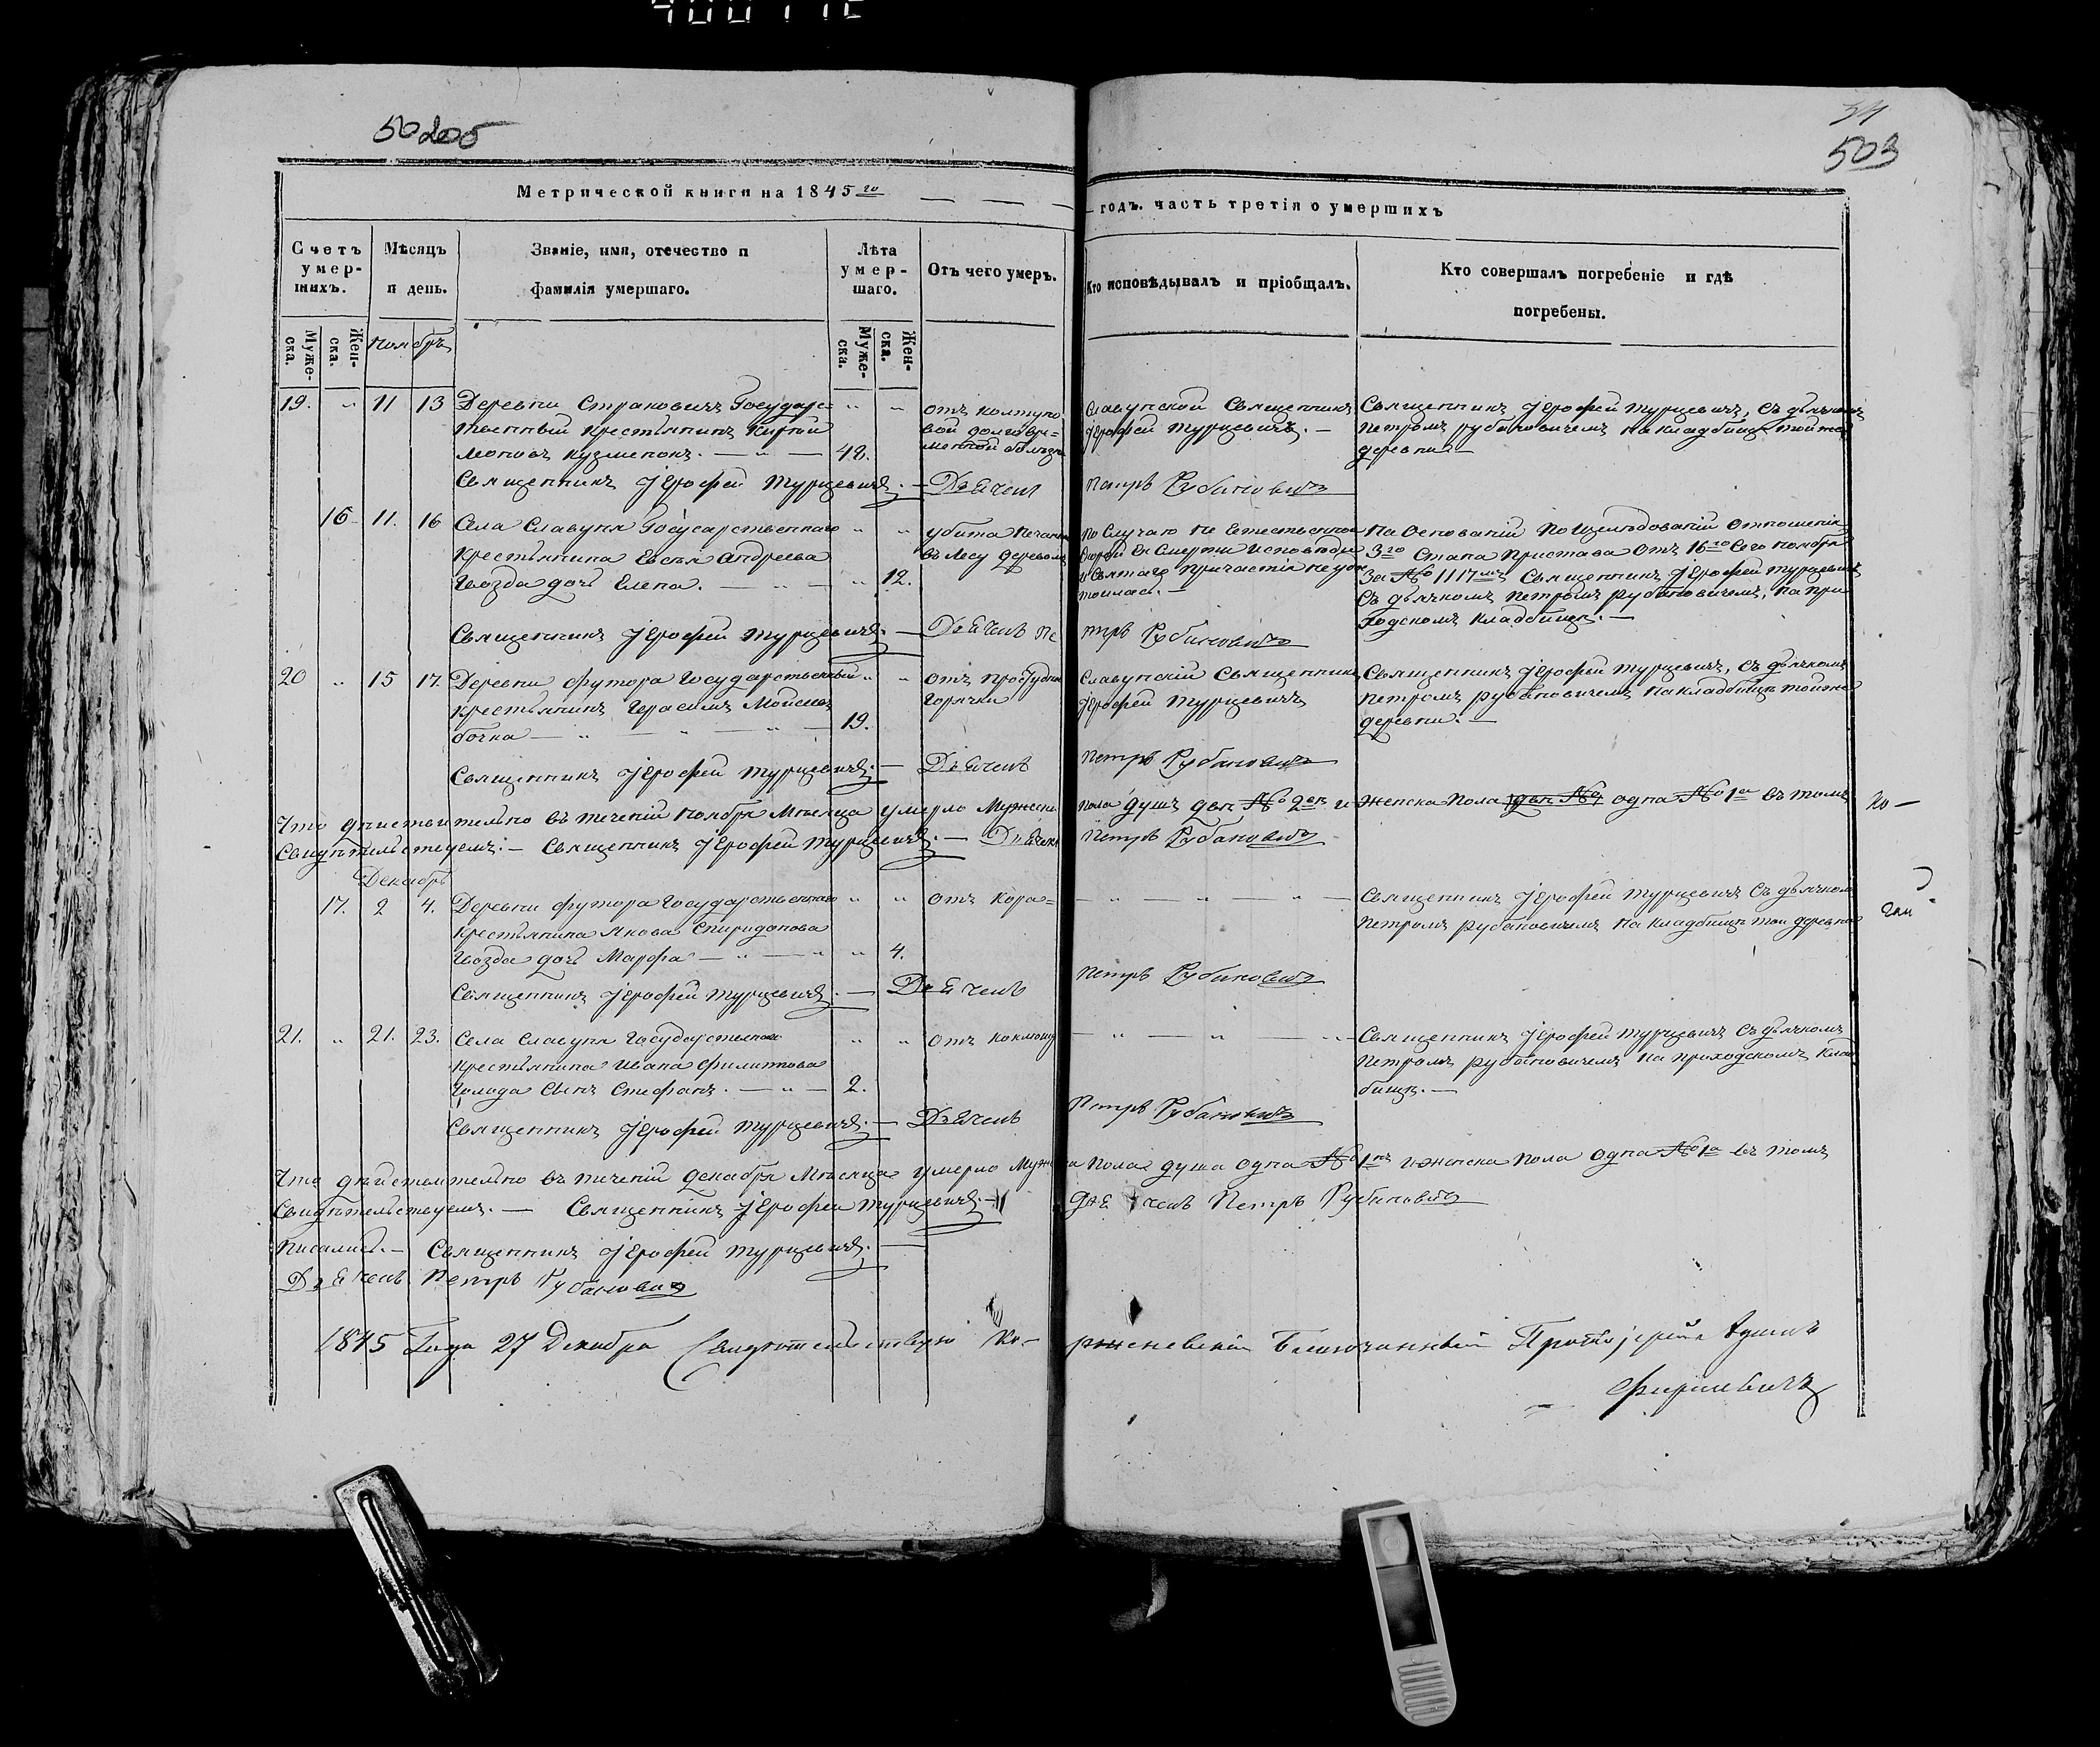 50 205
503
Метрической книги на 1845го
годъ. часть третія о умершихъ
Счетъ умер-
шихъ.
Мѣсяцъ
и день.
Званіе, имя, отечество и
фамилія умершаго.
Лѣта
умер-
шаго.
Отъ чего умеръ.
Кто исповѣдывалъ и пріобщалъ.
Кто совершалъ погребеніе и гдѣ
погребены.
Муже-
ска.
Жен-
ска.
Ноябрь
Муже-
ска.
Жен-
ска.
19. „ 11 13 Деревни Страковичъ Государс=
твенный крестьянинъ
Кузменокъ. — „ — 48.
отъ колтуно
вой долговре=
менной болѣзни
Славунской Священникъ
Іерофей Турцевичъ. —
Священникъ Іерофей Турцевичъ, съ дьячкомъ
Петромъ Рубановичемъ на кладбищѣ той же
деревни —
Священникъ Іерофей Турцевичъ. — Дьячекъ Петръ Рубановичъ
16 11. 16 Села Славуня Государственнаго
крестьянина Евсея Андреева
Гвозда дочь Елена. — 12.
убита нечаянно
въ лесу деревомъ
По случаю не естественной
скорой ея смерти исповѣди
и Святаго причастія не удос
тоилась. —
На основаніи по изслѣдованіи отношенія
3го Стана Пристава отъ 16го сего ноября
за № 1117мъ Священникъ Іерофей Турцевичъ
съ дьячкомъ Петромъ Рубановичемъ, на при
ходскомъ кладбищѣ. —
Священникъ Іерофей Турцевичъ. — Дьячекъ Петръ Рубановичъ
20 „ 15 17. Деревни Футора Государственный
крестьянинъ Герасимъ Мойсеевъ
бочка — „ — „ — 19.
отъ простудной
горячки
Славунскій Священникъ
Іерофей Турцевичъ
Священникъ Іерофей Турцевичъ, съ дьячкомъ
Петромъ Рубановичемъ на кладбищѣ той же
деревни. —
Священникъ Іерофей Турцевичъ. — Дьячекъ Петръ Рубановичъ
Что дѣйствительно въ теченіи ноября мѣсяца умерло мужеска пола душъ двѣ № 2вѣ и женска пола одна № 1на въ томъ
свидѣтельствуемъ. — Священникъ Іерофей Турцевичъ. — Дьячекъ Петръ Рубановичъ
Но —
Декабрь
17. 2 4. Деревни Футора Государственнаго
крестьянина Якова Спиридонова
Гвозда дочь Марфа — „ — „ 4.
отъ кора=
Священникъ Іерофей Турцевичъ съ дьячкомъ
Петромъ Рубановичемъ на кладбищѣ той деревни
Священникъ Іерофей Турцевичъ. — Дьячекъ Петръ Рубановичъ
21. „ 21. 23. Села Славуня Государственнаго
крестьянина Ивана Филиппова
Голода сынъ Стефанъ. — „ — 2.
отъ коклюшу
Священникъ Іерофей Турцевичъ съ дьячкомъ
Петромъ Рубановичемъ на приходскомъ клад
бищѣ. —
Священникъ Іерофей Турцевичъ. — Дьячекъ Петръ Рубановичъ
Что дѣйствительно въ теченіи декабря мѣсяца умерло мужеска пола душа одна № 1нъ и женска пола одна № 1а въ томъ
свидѣтельствуемъ. — Священникъ Іерофей Турцевичъ. — Дьячекъ Петръ Рубановичъ
Писались. — Священникъ Іерофей Турцевичъ. —
Дьячекъ Петръ Рубановичъ
1845 Года 27 Декабря Свидѣтельствую Благочинный Протоіерей